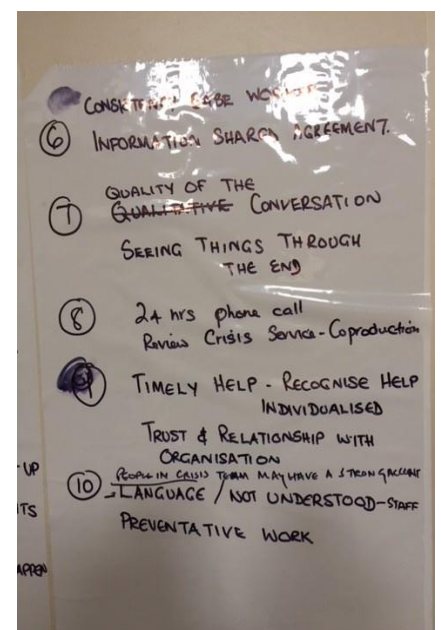 CONSISTENT CARE WORKER
⑥ INFORMATION SHARED AGREEMENT.
QUALITY OF THE
⑦ QUALITATIVE CONVERSATION
SEEING THINGS THROUGH
THE END
⑧ 24 hrs phone call
Review Crisis Service - Coproduction
TIMELY HELP - RECOGNISE HELP
INDIVIDUALISED
TRUST & RELATIONSHIP WITH
ORGANISATION
PEOPLE IN CRISIS TEAM MAY HAVE A STRONG ACCENT
⑩ - LANGUAGE / NOT UNDERSTOOD - STAFF
PREVENTATIVE WORK
UP
TS
APPEN